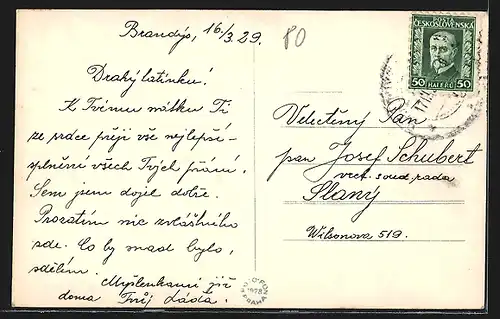 Brandýs, 16/3. 29.
80
Drahý tatínku!
K Tvému svátku Ti
ze srdce přeji vše nejlepší -
splnění všech Tvých přání.
Sem jsem dojel dobře.
Prozatím nic zvláštního
zde. Co by snad bylo,
sdělím.
Myšlenkami již
doma Tvůj Láďa.
POŠTA
ČESKOSLOVENSKÁ
50 HALÉŘŮ 50
Velectěný Pan
pan Josef Schubert
vrch. soud. rada
Slaný
Wilsonova 519.
PRAHA